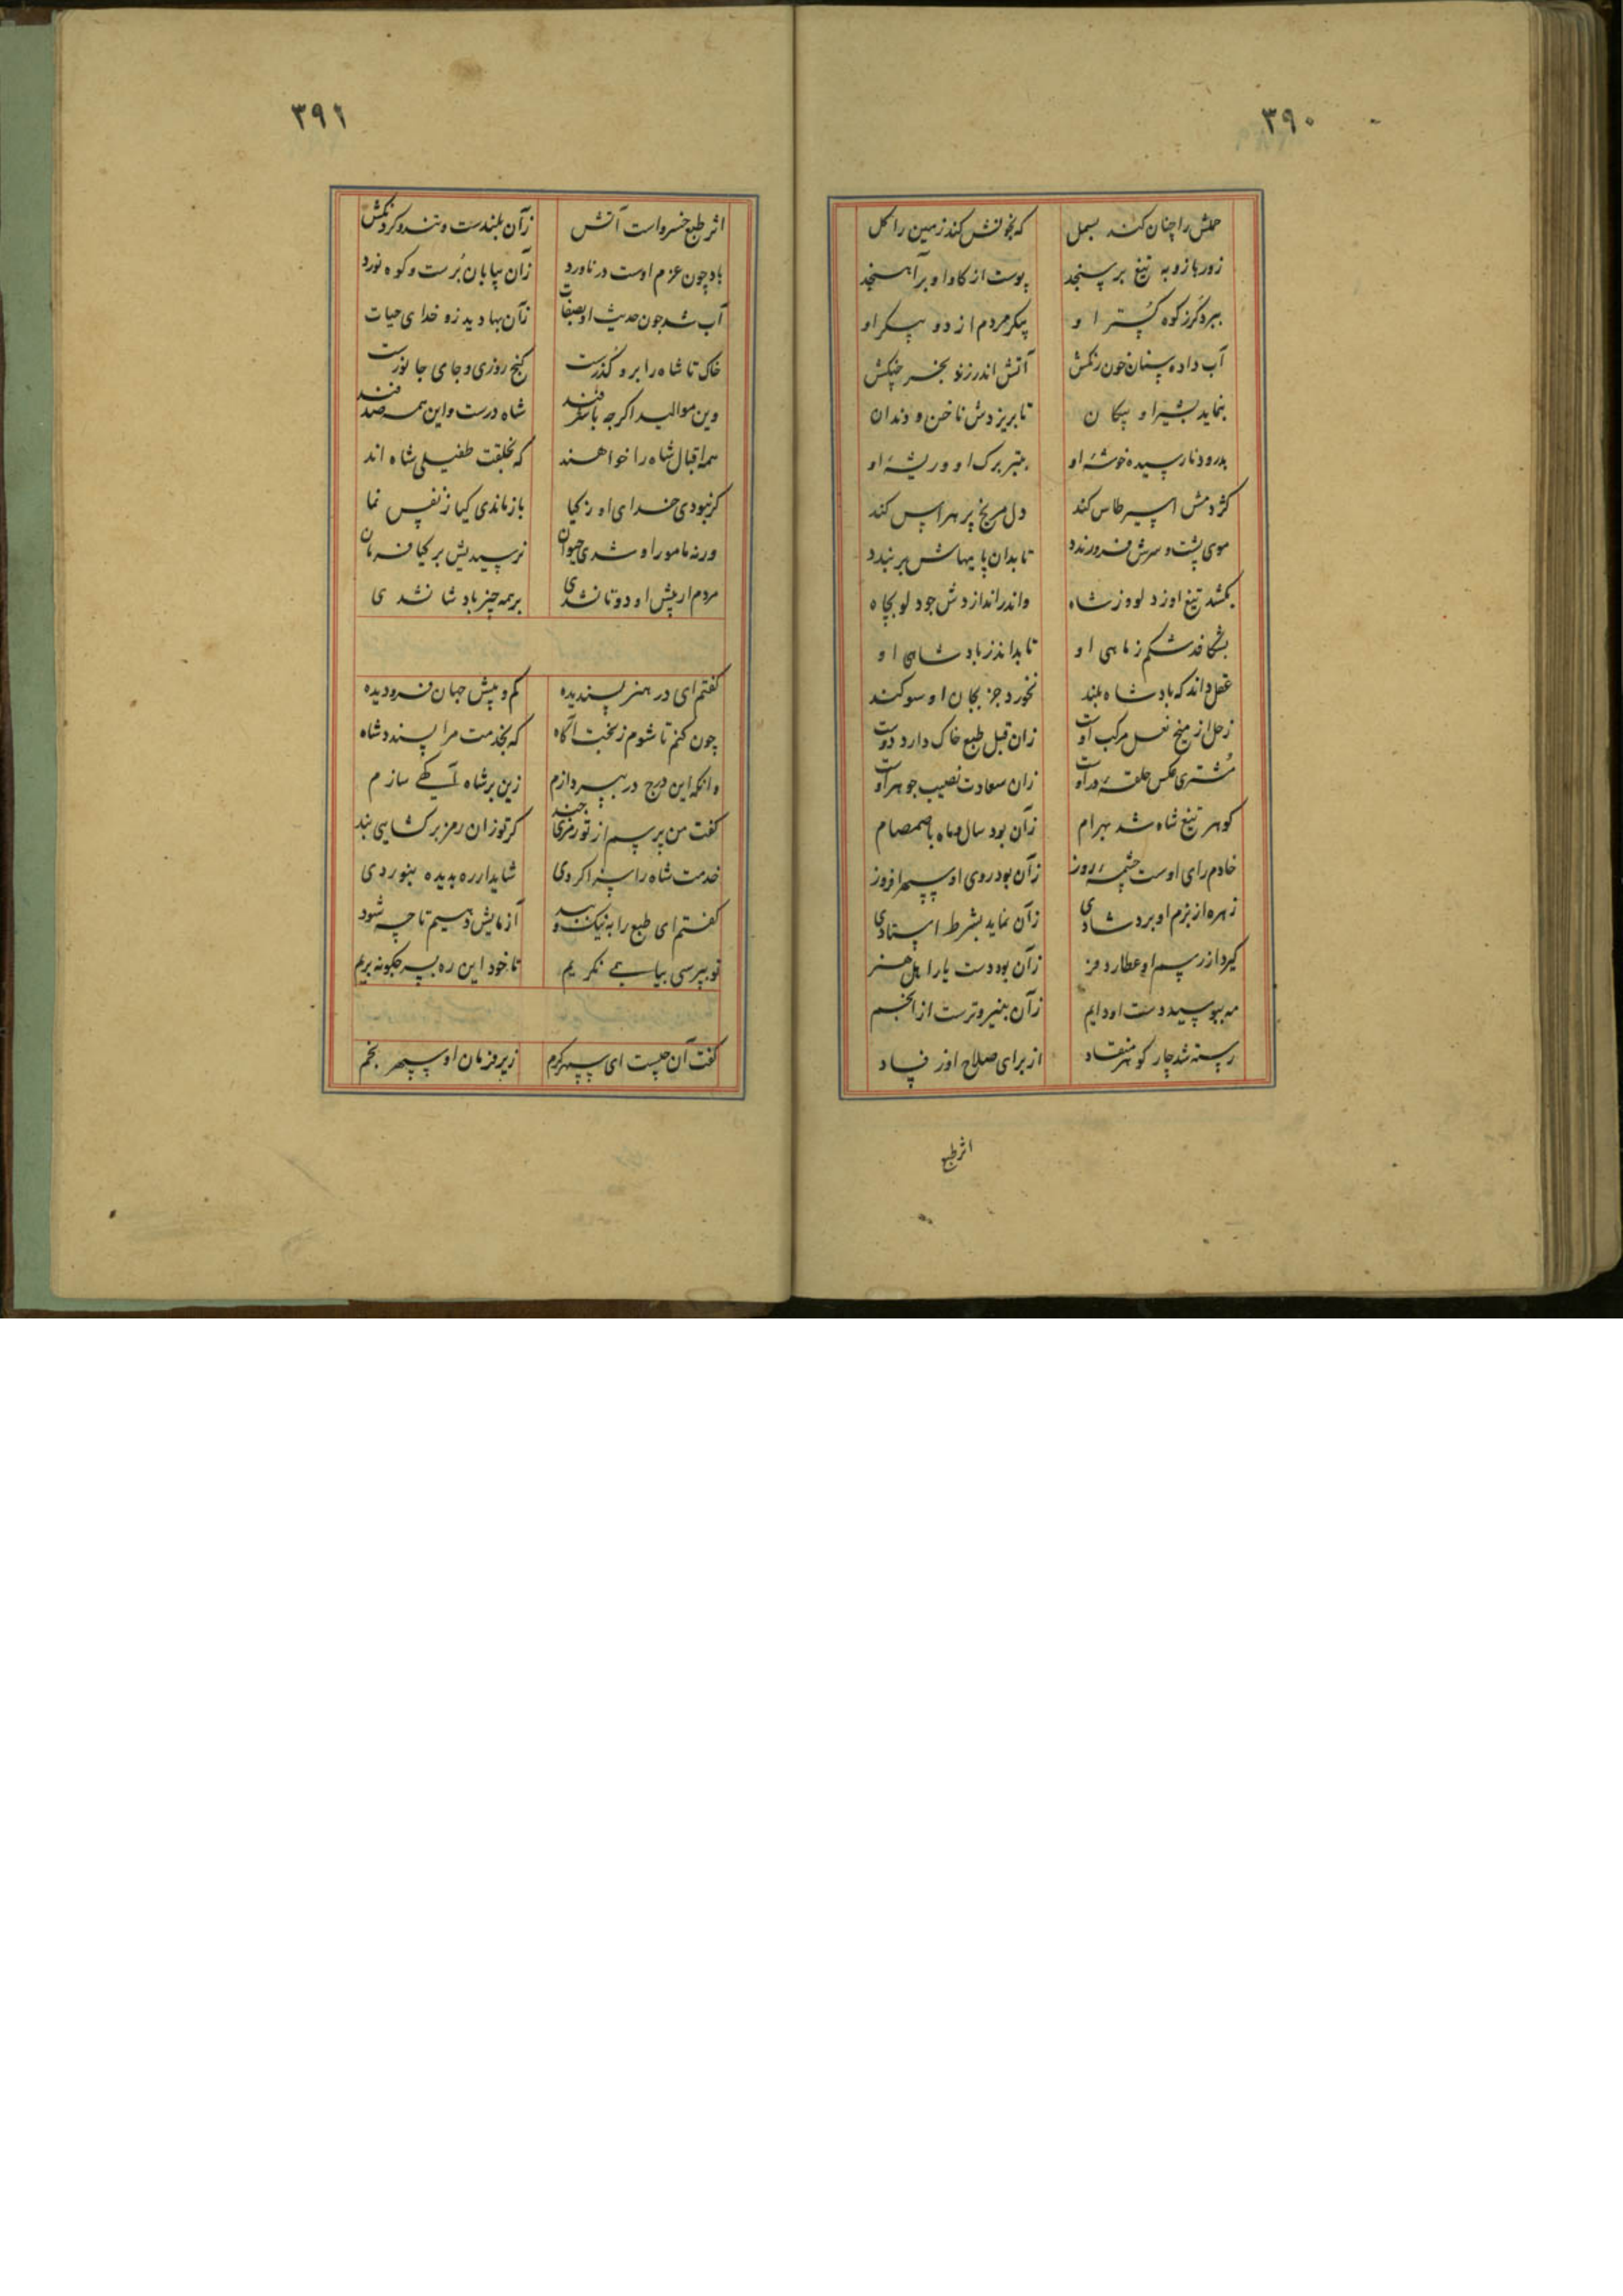 ۳۹۰
حملش را چنان کند بسمل که بخونش کند زمین را کل
زور بازو به تیغ بر سنجد پوست از کاو او بر آهنجد
ببرد کرز کوه پستر او پیکر مردم از دو پیکر او
آب داده سنان خون رنکش آتش اندر زند بخرچنکش
بنماید بشیر او پیکان تا بریزدش ناخن و دندان
بدرود نارسیده خوشهٔ او ببرد برک او و ریشهٔ او
کژدمش اسیر طاس کند دل مریخ پر هراس کند
موی پشت و سرش فرو رندد تا بدان پایهاش بر بندد
بکشد تیغ او ز دلو وز شاه واندر اندازدش چو دلو بچاه
بشکافد شکم ز ماهی او تا بداند ز پادشاهی او
عقل داند که پادشاه بلند نخورد جز بجان او سوکند
زحل از میخ نعل مرکب اوست زان قبل طبع خاک دارد دوست
مشتری عکس حلقهٔ در اوست زان سعادت نصیب جوهر اوست
کوهر تیغ شاه شد بهرام زآن بود سال و ماه با صمصام
خادم رای اوست چشمهٔ روز زآن بود روی او سپهر افروز
زهره از بزم او برد شادی زآن نماید بشرط استادی
کیرد از رسم او عطارد فر زآن بود دست یار اهل هنر
مه ببوسید دست او دایم زآن بنیروترست از انجم
رسته شد چار کوهر منقاد از برای صلاح اوز فساد
اثر طبع
۳۹۱
اثر طبع خسرو است آتش زآن بلندست و تند و کردنکش
باد چون عزم اوست در ناورد زآن بیابان بُرست و کوه نورد
آب شد چون حدیث او بصفات زآن بها دید زو خدای حیات
خاک تا شاه را برو کذرست کنج روزی و جای جانورست
وین موالید اکرچه با سقر فتند شاه درست و این همه صدفند
همه اقبال شاه را خواهند که بخلقت طفیلی شاه اند
کر نبودی خدای او ز کیا باز ماندی کیا ز نفس نما
ورنه مامور او شدی حیوان نرسیدیش بر کیا فرمان
مردم ار پیش او دوتا نشدی بر همه چیز بادشا نشدی
کفتم ای در هنر پسندیده کم و بیش جهان فرو دیده
چون کنم تا شوم ز بخت آکاه که بخدمت مرا پسندد شاه
وانکه این درج در بپردازم زین بر شاه تحفه‌ای سازم
کفت من پرسم از تو رمزی چند کر تو زان رمز بر کشایی بند
خدمت شاه را سزا کردی شاید ار ره بدیده بنوردی
کفتم ای طبع را به نیک و بد آزمایش دهیم تا چه شود
تو بپرسی بیا همی نکریم تا خود این ره بسر چکونه بریم
کفت آن چیست ای سپهر کرم زیر فرمان او سپهر بخم